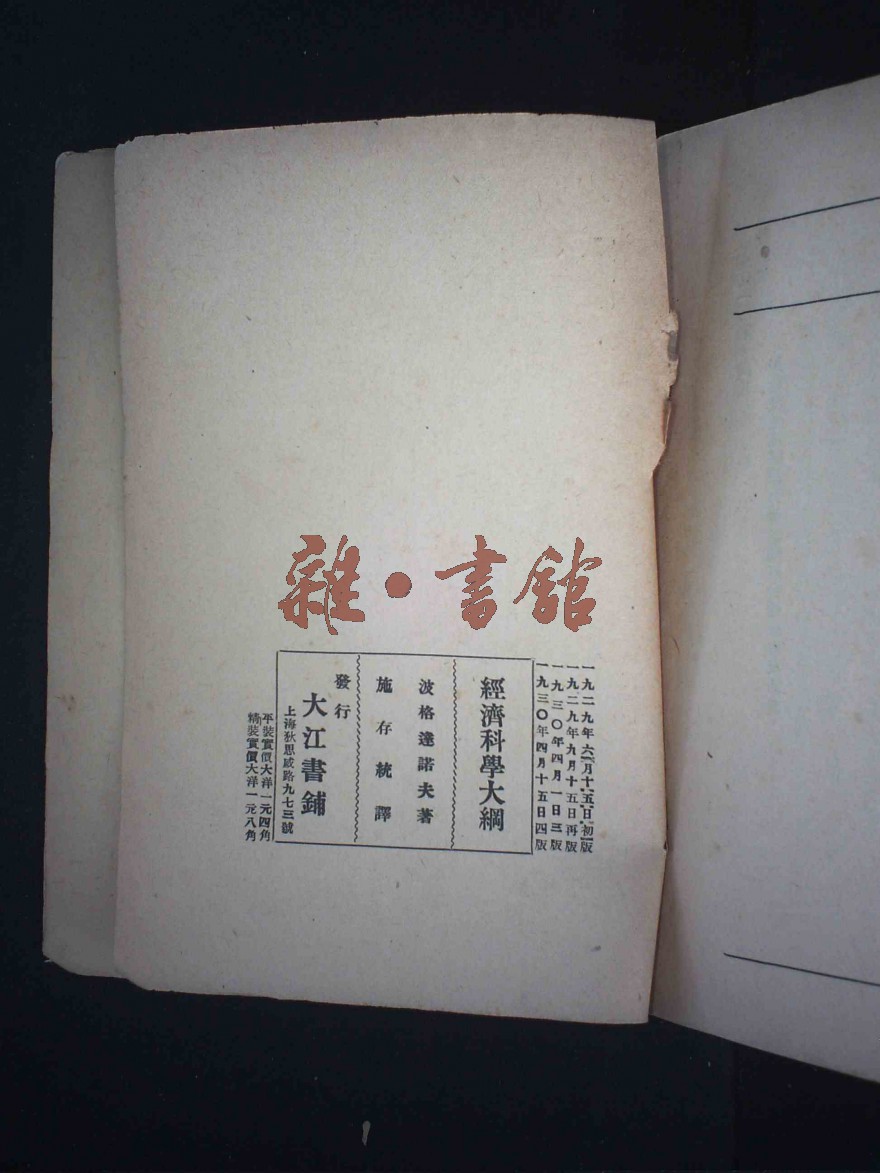 雜·書館
一九二九年六月十五日初版
一九二九年九月十五日再版
一九三〇年四月一日三版
一九三〇年四月十五日四版
經濟科學大綱
波格達諾夫著
施存統譯
發行
大江書鋪
上海狄思威路九七三號
平裝實價大洋一元四角
精裝實價大洋一元八角